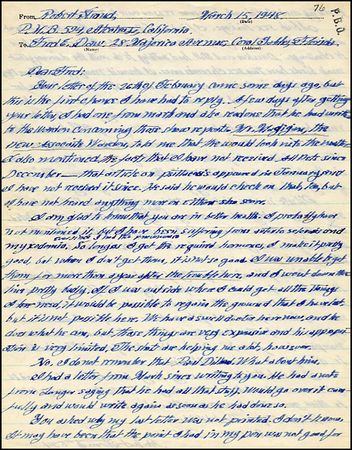 76
P.B.D.
From Robert Stroud, March 15, 1948.
(Date)
P.M.B. 594, Alcatraz, California.
To Fred E. Daw, 28 Majorica Avenue, Coral Gables, Florida.
(Name) (Address)
Dear Fred:
Your letter of the 26th of February came some days ago, but
this is the first chance I have had to reply. A few days after getting
your letter, I had one from Marsh and also learned that he had written
to the Warden concerning those stories reports. Mr. the
new Associate Warden, told me that he would look into the matter.
I also mentioned the fact that I have not received All Pets since
December that article on psittacosis appeared in January and
I have not received it since. He said he would check on that, too, but
I have not heard anything more on either since.
I am glad to know that you are in better health. I probably have
not mentioned it, but I have been suffering from
and my So long as I get the required hormones, I make it pretty
good, but when I don't get them, it is not so good. I was unable to get
them for more than a year after the trouble here, and I went down the
hill pretty badly. If I was outside where I could get all the things
I have need, it would be possible to regain the ground that I have lost
but it is not possible here. We have a swell doctor here now, and he
does what he can, but those things are very expensive and his appropri-
ation is very limited. The shots are helping me a bit, however.
No, I do not remember that Paul What about him.
I had a letter from Marsh since writing to you. He had a note
from saying that he had all that stuff, would go over it care-
fully and would write again as soon as he had done so.
You asked why my last letter was not printed. I don't know.
It may have been that the point I had in my pen was not good for